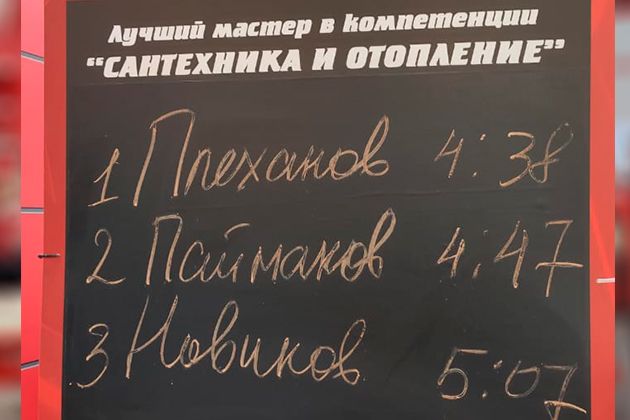 Лучший мастер в компетенции
“САНТЕХНИКА И ОТОПЛЕНИЕ”
1 Плеханов 4:38
2 Паймаков 4:47
3 Новиков 5:07